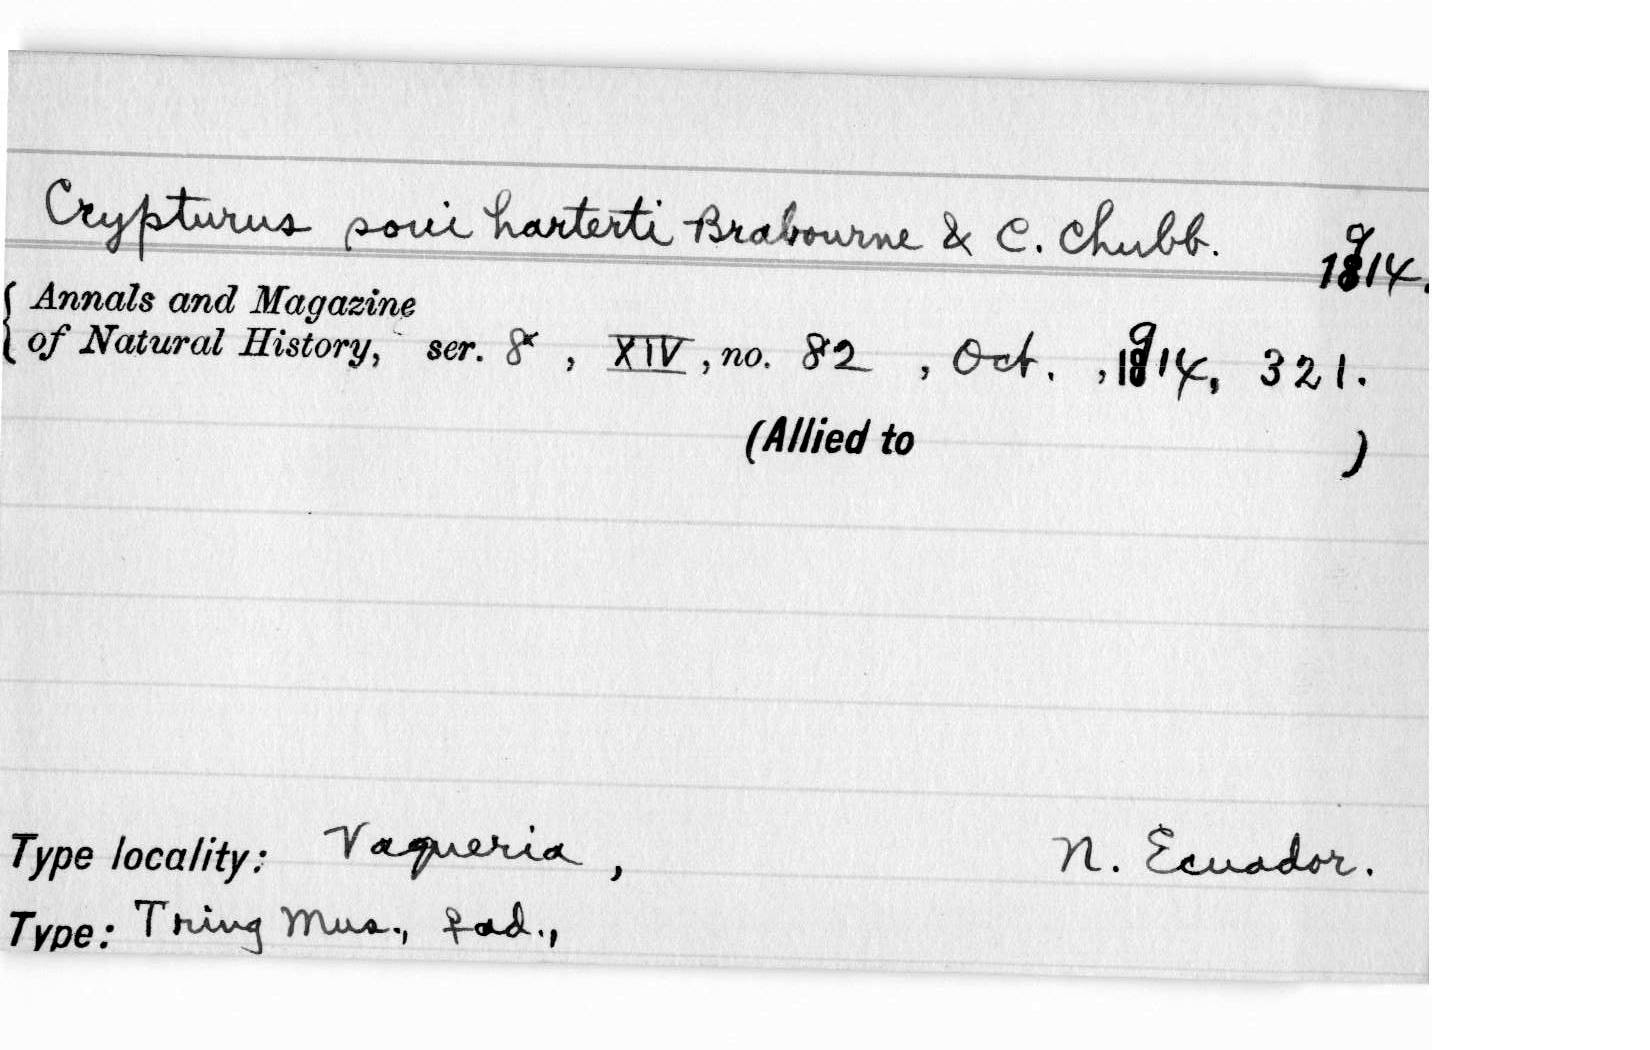 Crypturus soui harterti Brabourne & C. Chubb. 1914.
Annals and Magazine
of Natural History, ser. 8, XIV, no. 82, Oct., 1914, 321.
(Allied to )
Type locality: Vaqueria, N. Ecuador.
Type: Tring Mus., ♀ ad.,